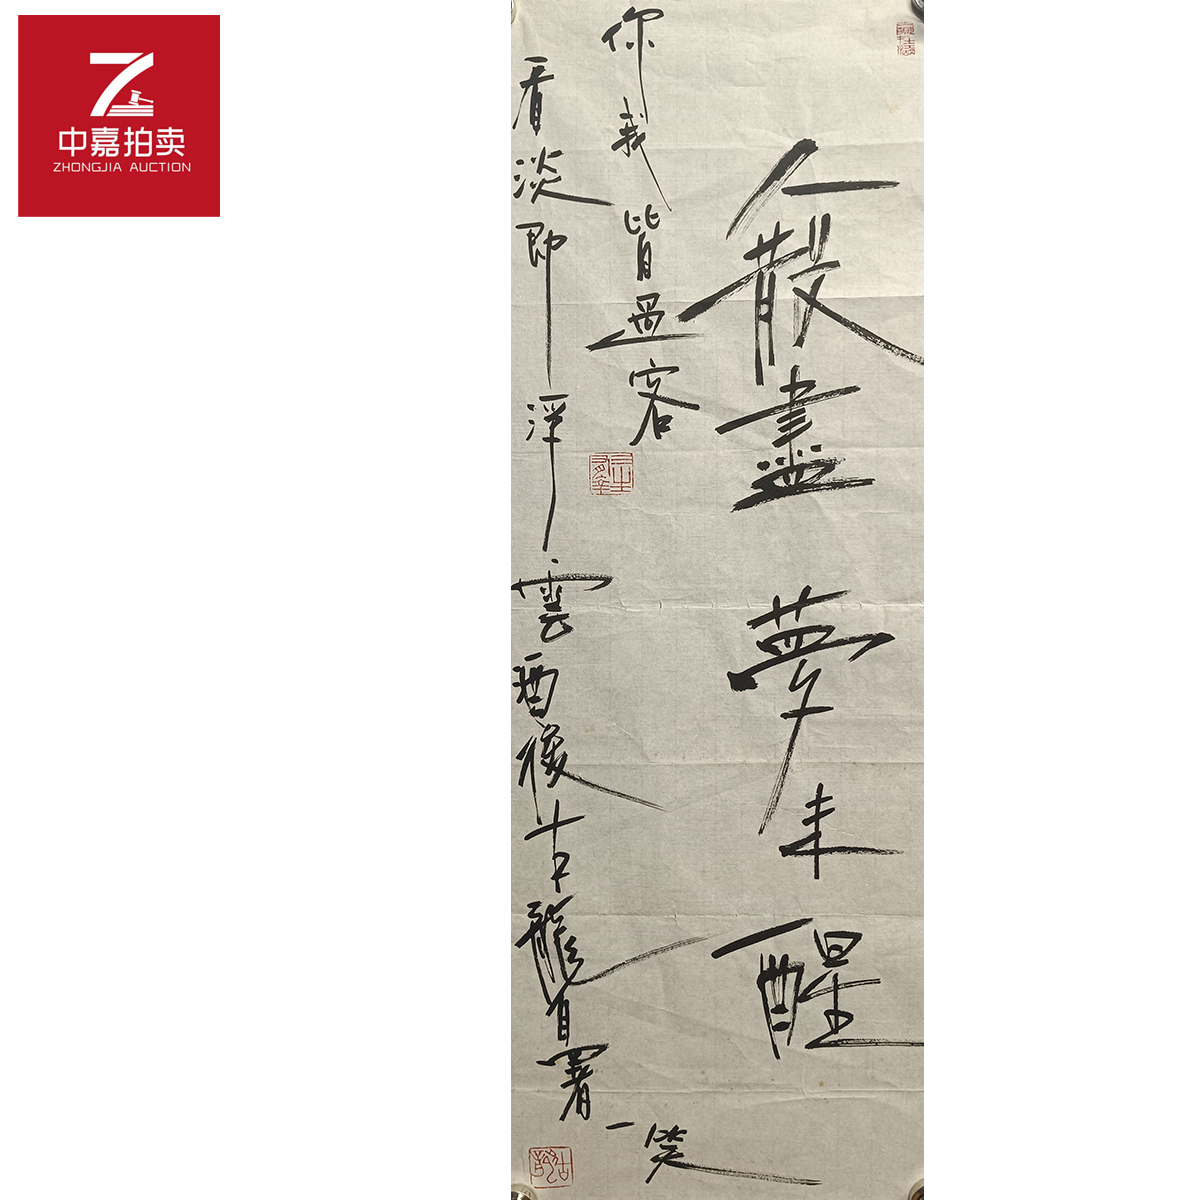 中嘉拍卖
ZHONGJIA AUCTION
人散盡夢未醒
你我皆過客
看淡即浮雲酒後古龍自署一笑